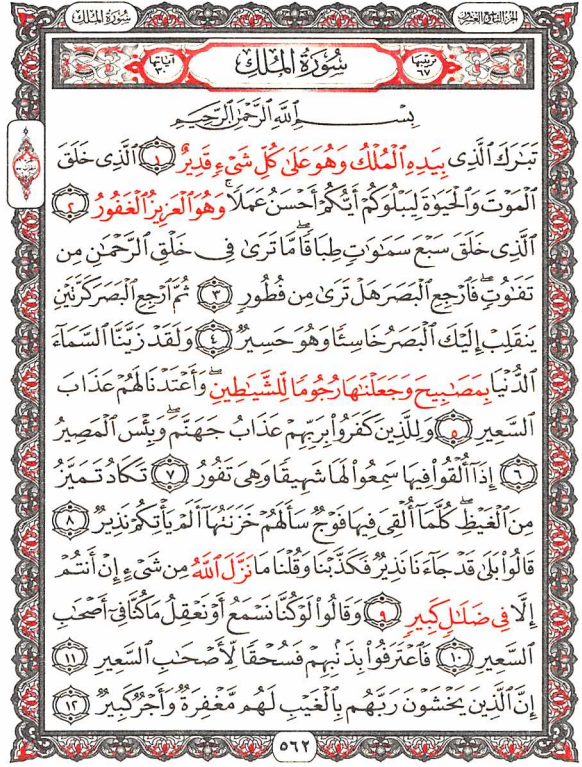 سُورَةُ المُلك الجزء التاسع والعشرون
آياتها ٣٠ سُورَةُ المُلك ترتيبها ٦٧
بِسْمِ اللَّهِ الرَّحْمَٰنِ الرَّحِيمِ
تَبَٰرَكَ ٱلَّذِى بِيَدِهِ ٱلْمُلْكُ وَهُوَ عَلَىٰ كُلِّ شَىْءٍ قَدِيرٌ ١ ٱلَّذِى خَلَقَ
ٱلْمَوْتَ وَٱلْحَيَوٰةَ لِيَبْلُوَكُمْ أَيُّكُمْ أَحْسَنُ عَمَلًا ۚ وَهُوَ ٱلْعَزِيزُ ٱلْغَفُورُ ٢
ٱلَّذِى خَلَقَ سَبْعَ سَمَٰوَٰتٍ طِبَاقًا ۖ مَّا تَرَىٰ فِى خَلْقِ ٱلرَّحْمَٰنِ مِن
تَفَٰوُتٍ ۖ فَٱرْجِعِ ٱلْبَصَرَ هَلْ تَرَىٰ مِن فُطُورٍ ٣ ثُمَّ ٱرْجِعِ ٱلْبَصَرَ كَرَّتَيْنِ
يَنقَلِبْ إِلَيْكَ ٱلْبَصَرُ خَاسِئًا وَهُوَ حَسِيرٌ ٤ وَلَقَدْ زَيَّنَّا ٱلسَّمَآءَ
ٱلدُّنْيَا بِمَصَٰبِيحَ وَجَعَلْنَٰهَا رُجُومًا لِّلشَّيَٰطِينِ ۖ وَأَعْتَدْنَا لَهُمْ عَذَابَ
ٱلسَّعِيرِ ٥ وَلِلَّذِينَ كَفَرُوا۟ بِرَبِّهِمْ عَذَابُ جَهَنَّمَ ۖ وَبِئْسَ ٱلْمَصِيرُ
٦ إِذَآ أُلْقُوا۟ فِيهَا سَمِعُوا۟ لَهَا شَهِيقًا وَهِىَ تَفُورُ ٧ تَكَادُ تَمَيَّزُ
مِنَ ٱلْغَيْظِ ۖ كُلَّمَآ أُلْقِىَ فِيهَا فَوْجٌ سَأَلَهُمْ خَزَنَتُهَآ أَلَمْ يَأْتِكُمْ نَذِيرٌ ٨
قَالُوا۟ بَلَىٰ قَدْ جَآءَنَا نَذِيرٌ فَكَذَّبْنَا وَقُلْنَا مَا نَزَّلَ ٱللَّهُ مِن شَىْءٍ إِنْ أَنتُمْ
إِلَّا فِى ضَلَٰلٍ كَبِيرٍ ٩ وَقَالُوا۟ لَوْ كُنَّا نَسْمَعُ أَوْ نَعْقِلُ مَا كُنَّا فِىٓ أَصْحَٰبِ
ٱلسَّعِيرِ ١٠ فَٱعْتَرَفُوا۟ بِذَنۢبِهِمْ فَسُحْقًا لِّأَصْحَٰبِ ٱلسَّعِيرِ ١١
إِنَّ ٱلَّذِينَ يَخْشَوْنَ رَبَّهُم بِٱلْغَيْبِ لَهُم مَّغْفِرَةٌ وَأَجْرٌ كَبِيرٌ ١٢
٥٦٢